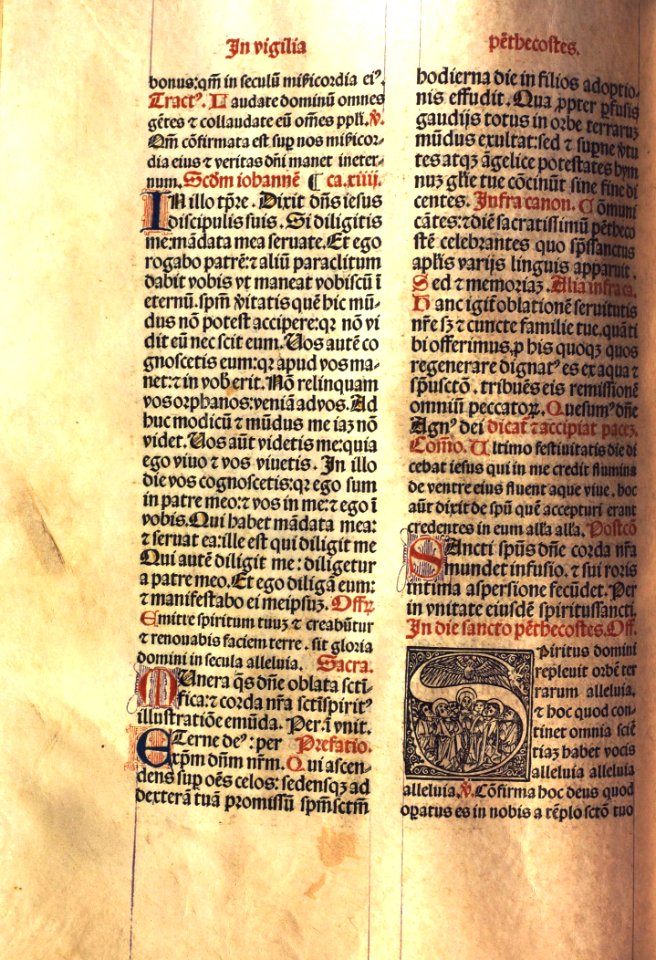 In vigilia
bonus: qm̄ in seculū mīcordia eiꝰ.
Tractꝰ. Laudate dominū omnes
gētes ⁊ collaudate eū om̄es ppl̄i. ℣.
Qm̄ cōfirmata est suꝑ nos mīcor-
dia eius ⁊ veritas dn̄i manet ineter-
num. Scd̄m iohannē ¶ ca. xiiij.
IN illo tp̄re. Dixit dn̄s iesus
discipulis suis. Si diligitis
me: mādata mea seruate. Et ego
rogabo patrē: ⁊ aliū paraclitum
dabit vobis vt maneat vobiscū ī
eternū. spm̄ v̄itatis quē hic mū-
dus nō potest accipere: qꝛ nō vi
dit eū nec scit eum. Uos autē co
gnoscetis eum: qꝛ apud vos ma-
net: ⁊ in vob̄ erit. Nō relinquam
vos orphanos: veniā ad vos. Ad
huc modicū ⁊ mūdus me iaꝫ nō
videt. Uos aūt videtis me: quia
ego viuo ⁊ vos viuetis. In illo
die vos cognoscetis: qꝛ ego sum
in patre meo: ⁊ vos in me: ⁊ ego ī
vobis. Qui habet mādata mea:
⁊ seruat ea: ille est qui diligit me
Qui autē diligit me: diligetur
a patre meo. Et ego diligā eum:
⁊ manifestabo ei meipsuꝫ. Offꝝ.
Emitte spiritum tuuꝫ ⁊ creabūtur
⁊ renouabis faciem terre. sit gloria
domini in secula alleluia. Sacra.
MUnera qs̄ dn̄e oblata sctī-
fica: ⁊ corda nr̄a sctīspiritꝰ
illustratiōe emūda. Per. ī vnit.
ETerne deꝰ: per Prefatio.
xp̄m dn̄m nr̄m. Qui ascen-
dens suꝑ oēs celos: sedensqꝫ ad
dexterā tuā promissū spm̄sctm̄
pēthecostes.
hodierna die in filios adoptio-
nis effudit. Qua ꝓpter ꝓfusis
gaudijs totus in orbe terraruꝫ
mūdus exultat: sed ⁊ supne v̄tu
tes atqꝫ āgelice potestates hym
nuꝫ gl̄ie tue cōcinūt sine fine di
centes. Infra canon. Cōmuni
cātes: ⁊ diē sacratissimū pētheco
stē celebrantes quo sp̄ssanctus
apl̄is varijs linguis apparuit.
Sed ⁊ memoriaꝫ. Alia infra ca.
Hanc igit̄ oblationē seruitutis
nr̄e sꝫ ⁊ cuncte familie tue. quā ti
bi offerimus. ꝓ his quoqꝫ quos
regenerare dignatꝰ es ex aqua ⁊
sp̄usctō. tribuēs eis remissionē
omniū peccatoꝝ. Quesumꝰ dn̄e
Agnꝰ dei dicat̄ ⁊ accipiat paceꝫ.
Com̄o. Ultimo festiuitatis die di
cebat iesus qui in me credit flumina
de ventre eius fluent aque viue. hoc
aūt dixit de sp̄u quē accepturi erant
credentes in eum all̄a all̄a. Postcō
SAncti sp̄us dn̄e corda nr̄a
mundet infusio. ⁊ sui roris
intima aspersione fecūdet. Per
in vnitate eiusdē spiritussancti.
In die sancto pēthecostes. Off.
SPiritus domini
repleuit orbē ter
rarum alleluia.
⁊ hoc quod con-
tinet omnia sciē
tiaꝫ habet vocis
alleluia alleluia
alleluia. ℣. Cōfirma hoc deus quod
oꝑatus es in nobis a tēplo sctō tuo